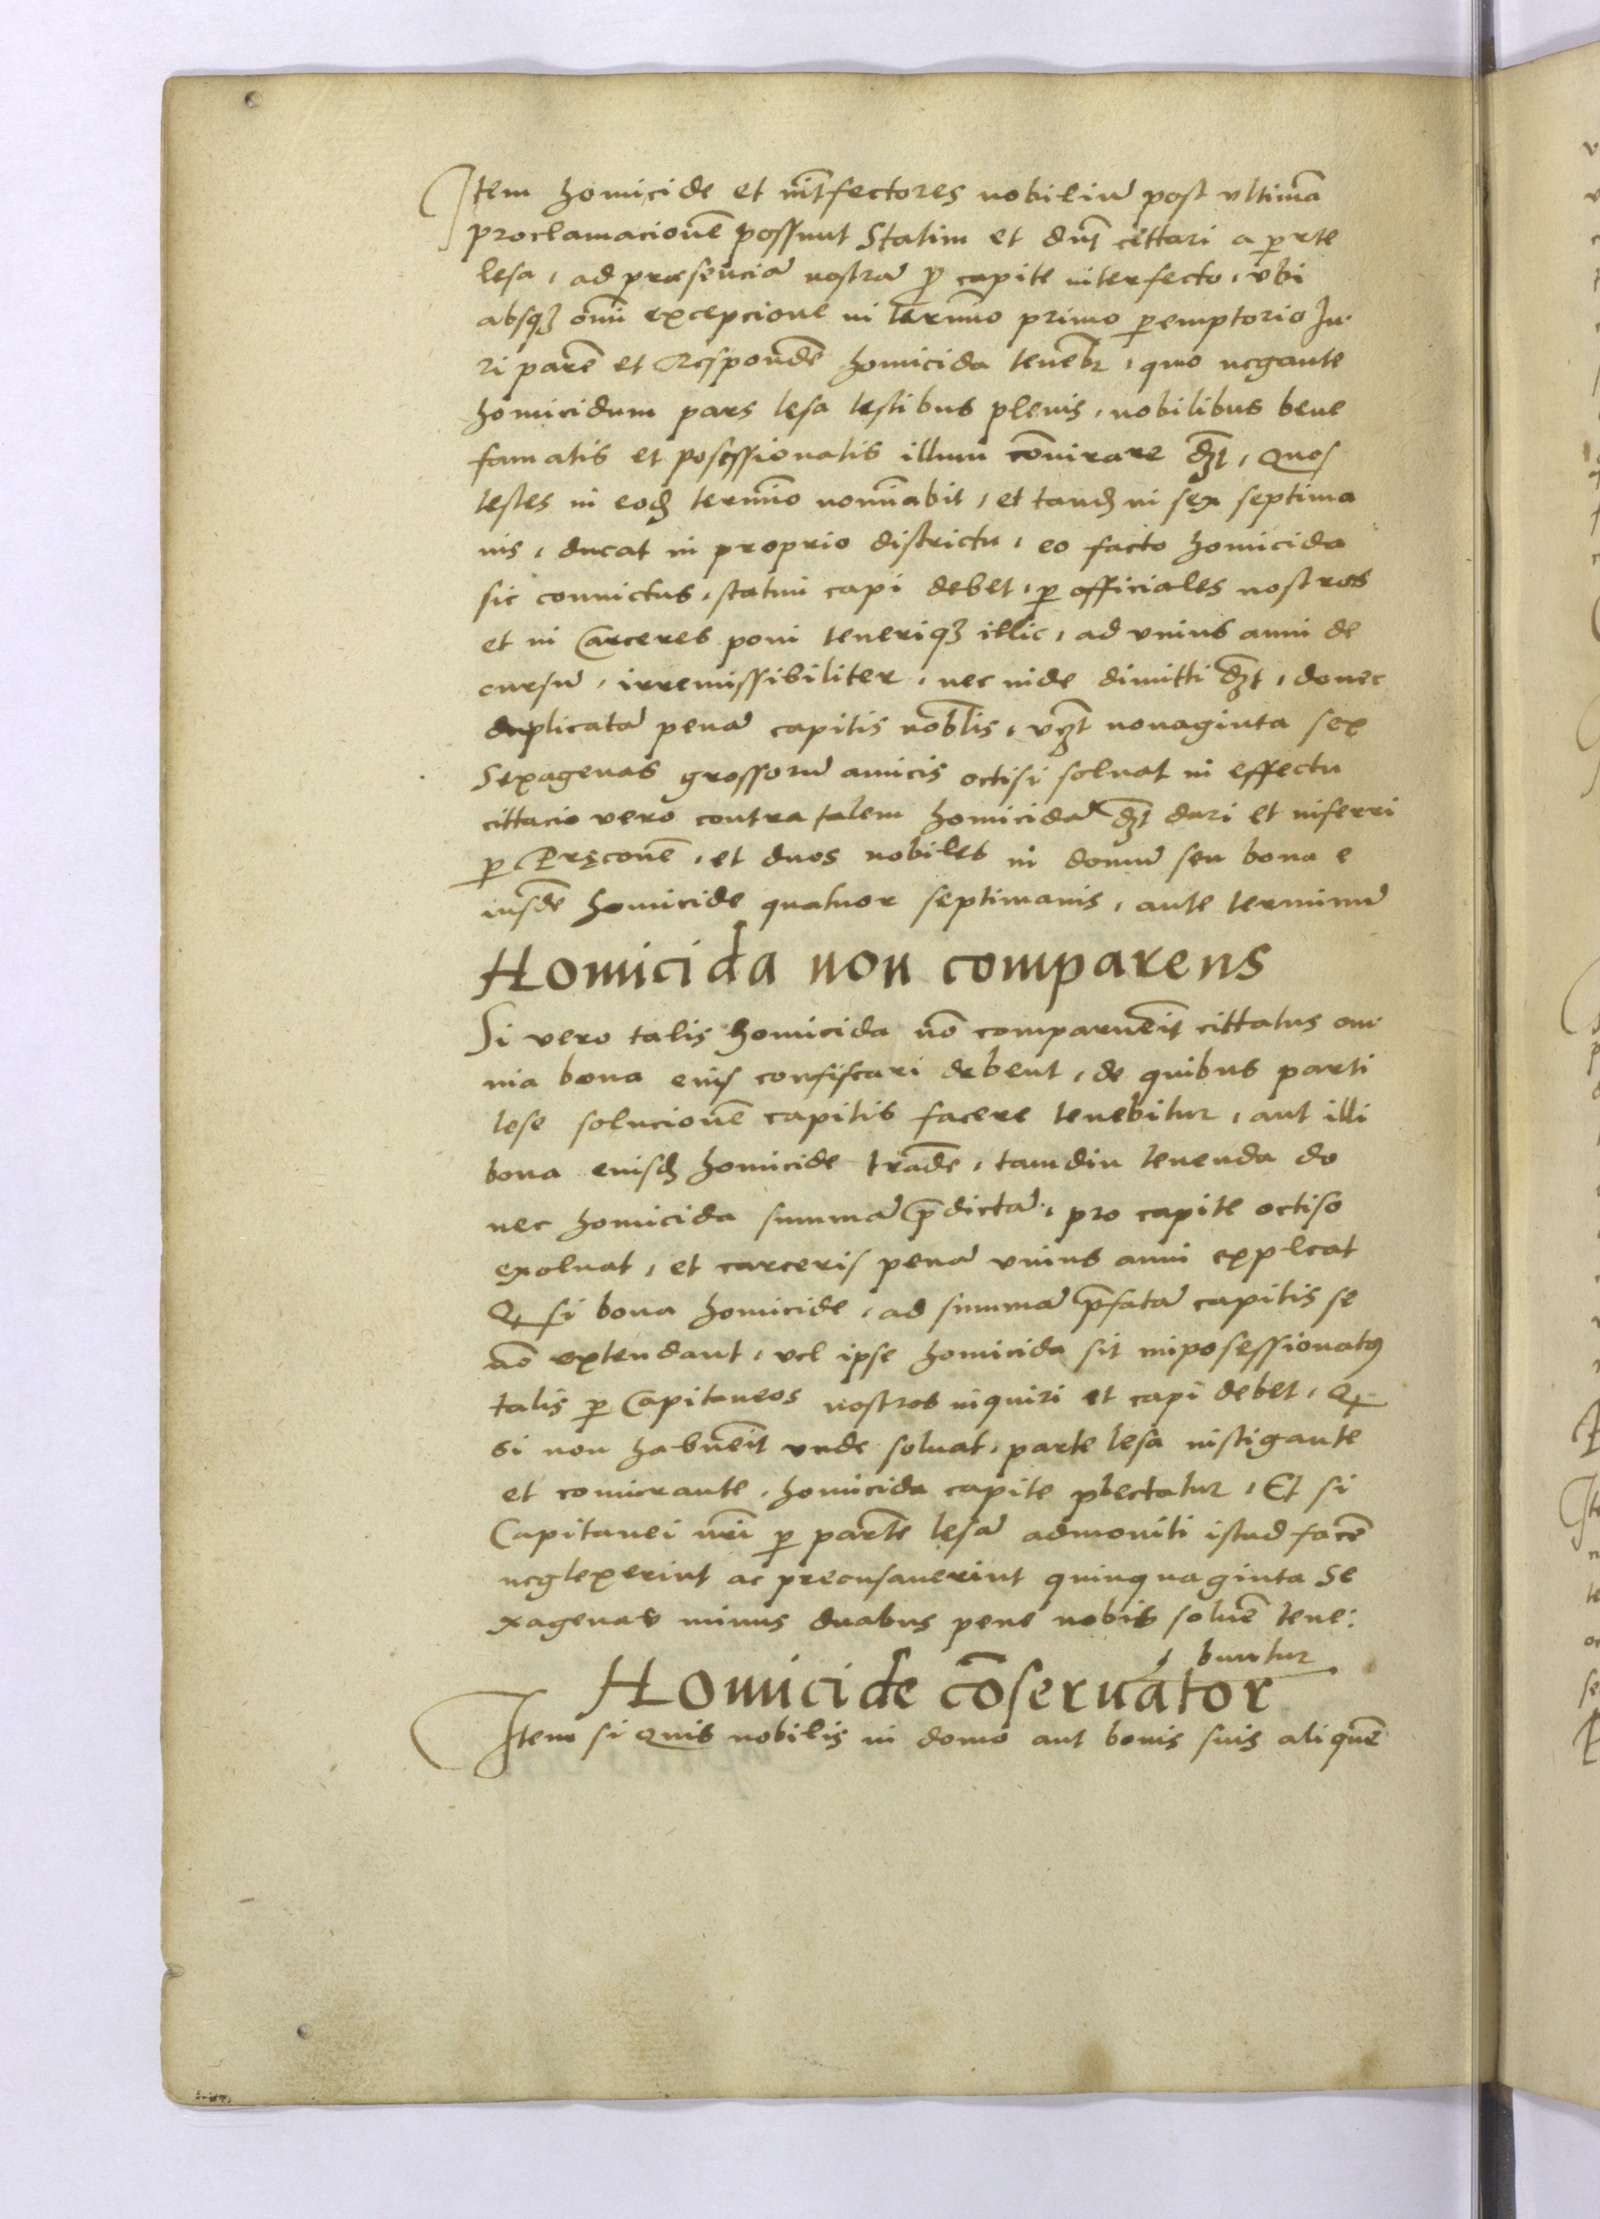 Item homicide et int̄fectores nobiliū post vltimā
proclamacionē possunt Statim et dn̄t cittari a ꝑte
lesa, ad præsenciā nostrā ꝓ capite interfecto, vbi
absqꝫ om̄i excepcione in term̄io primo ꝑemptorio Iu-
ri parē et Respondē homicida tenebꝛ̄, quo negante
homicidum pars lesa testibus plenis, nobilibus bene
famatis et posessionatis illum cōuicare dꝫt, Quos
testes in eodꝫ term̄io nom̄iabit, et tandꝫ in sex septima
nis, ducat in proprio districtu, eo facto homicida
sic conuictus, statim capi debet, ꝑ officiales nostros
et in Carceres poni teneriqꝫ illic, ad vnius anni de
cursū, irremissibiliter, nec inde dimitti dꝫt, donec
duplicatā penā capitis nobl̄is, vꝫt nonaginta sex
Sexagenas grossorū amicis octisi soluat in effectu
cittacio vero contra talem homicidā dꝫt dari et inferri
ꝑ Pręconē, et duos nobiles in domū seu bona e
iusdē homicide quatuor septimanis, ante terminū
Homicida non comparens
Si vero talis homicida nō comparuēit cittatus om-
nia bona eius confiscari debent, de quibus parti
lese solucionē capitis facere tenebitur, aut illi
bona eiusdꝫ homicide tradē, tamdiu tenenda do
nec homicida summā p̄dictā, pro capite octiso
exoluat, et carceris penā vnius anni expleat
Qꝫ si bona homicide, ad summā p̄fatā capitis se
nō extendant, vel ipse homicida sit imposessionatꝰ
talis ꝑ Capitaneos nostros inquiri et capi debet, Qꝫ
si non habuēit vnde soluat, parte lesa instigante
et comicrante, homicida capite plectatur, Et si
Capitanei nr̄i ꝑ partē lesā admoniti istud facē
neglexerint ac precusauerint quinquaginta Se
xagenas minus duabus pene nobis soluē tene:
buntur
Homicide cōseruator
Item si quis nobilis in domo aut bonis suis aliquē